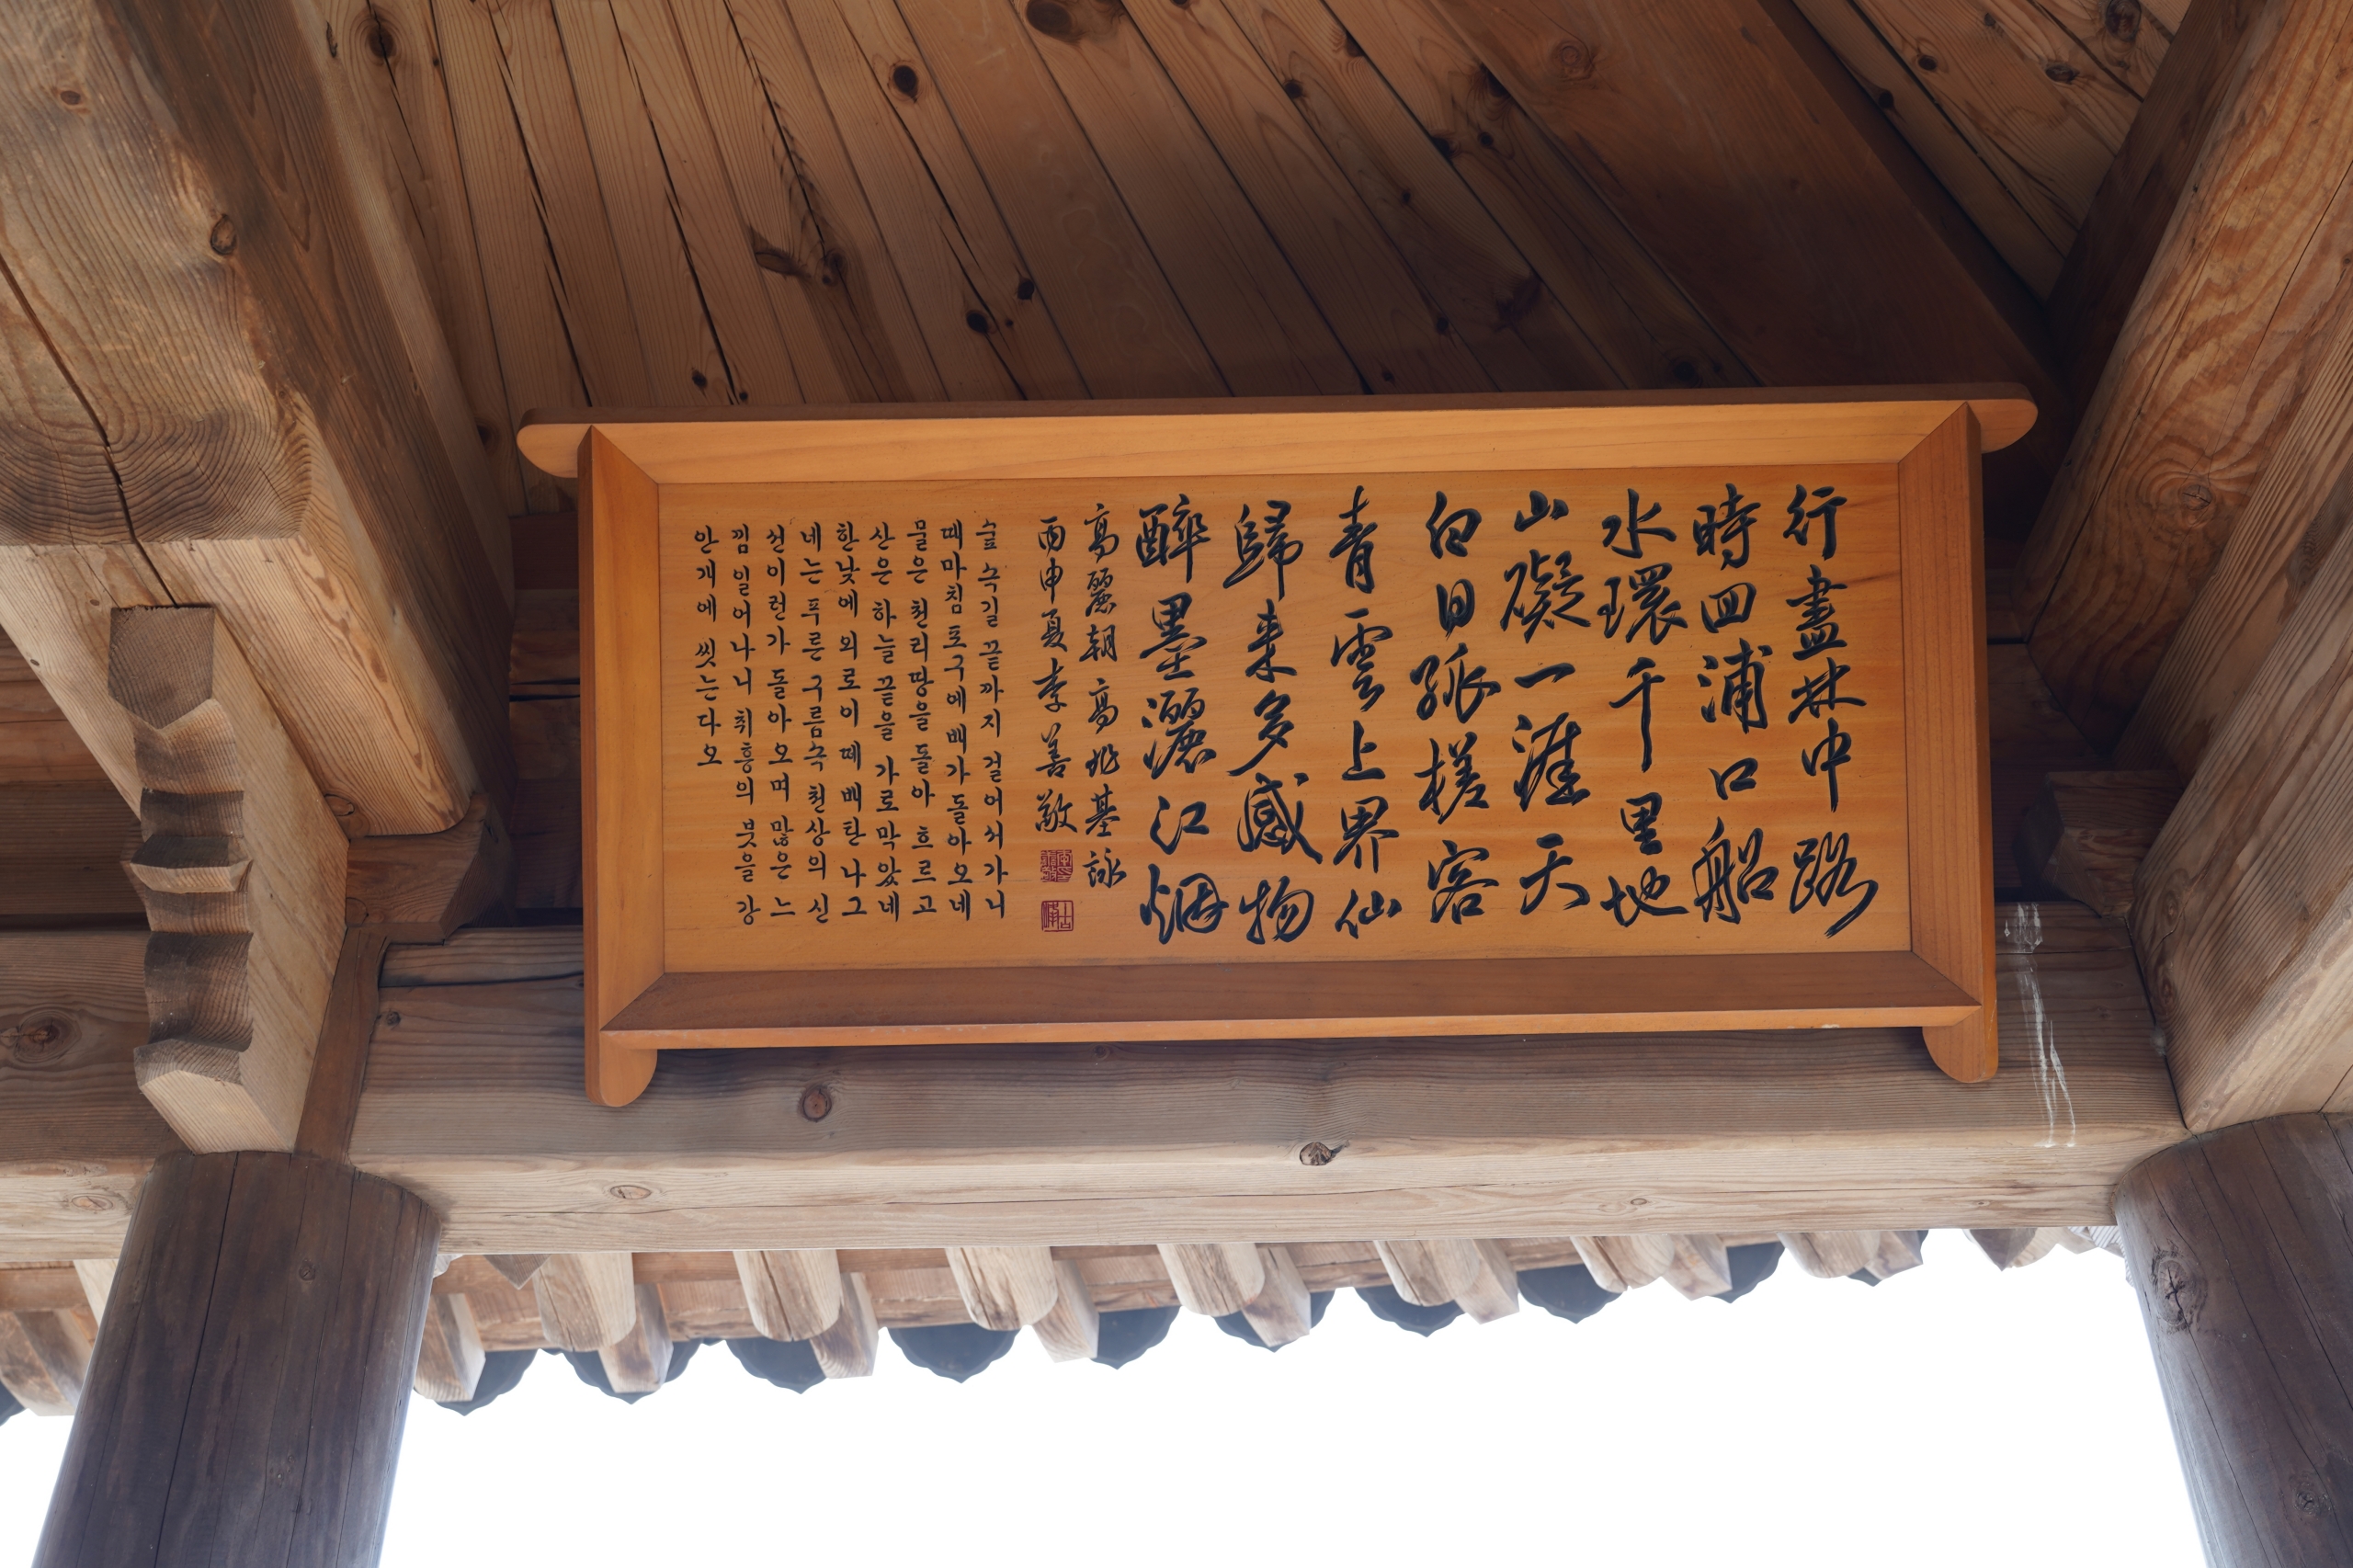 行盡林中路
時回浦口船
水環千里地
山礙一涯天
白日孤槎客
青雲上界仙
歸來多感物
醉墨灑江烟
高麗朝 高兆基 詠
丙申夏 李善敬
숲 속길 끝까지 걸어서가니
때마침 포구에 배가 돌아오네
물은 천리땅을 돌아 흐르고
산은 하늘끝을 가로막았네
한낮에 외로이 떼배탄 나그
네는 푸른 구름속 천상의 신
선이런가 돌아오며 많은 느
낌 일어나니 취흥의 붓을 강
안개에 씻는다오